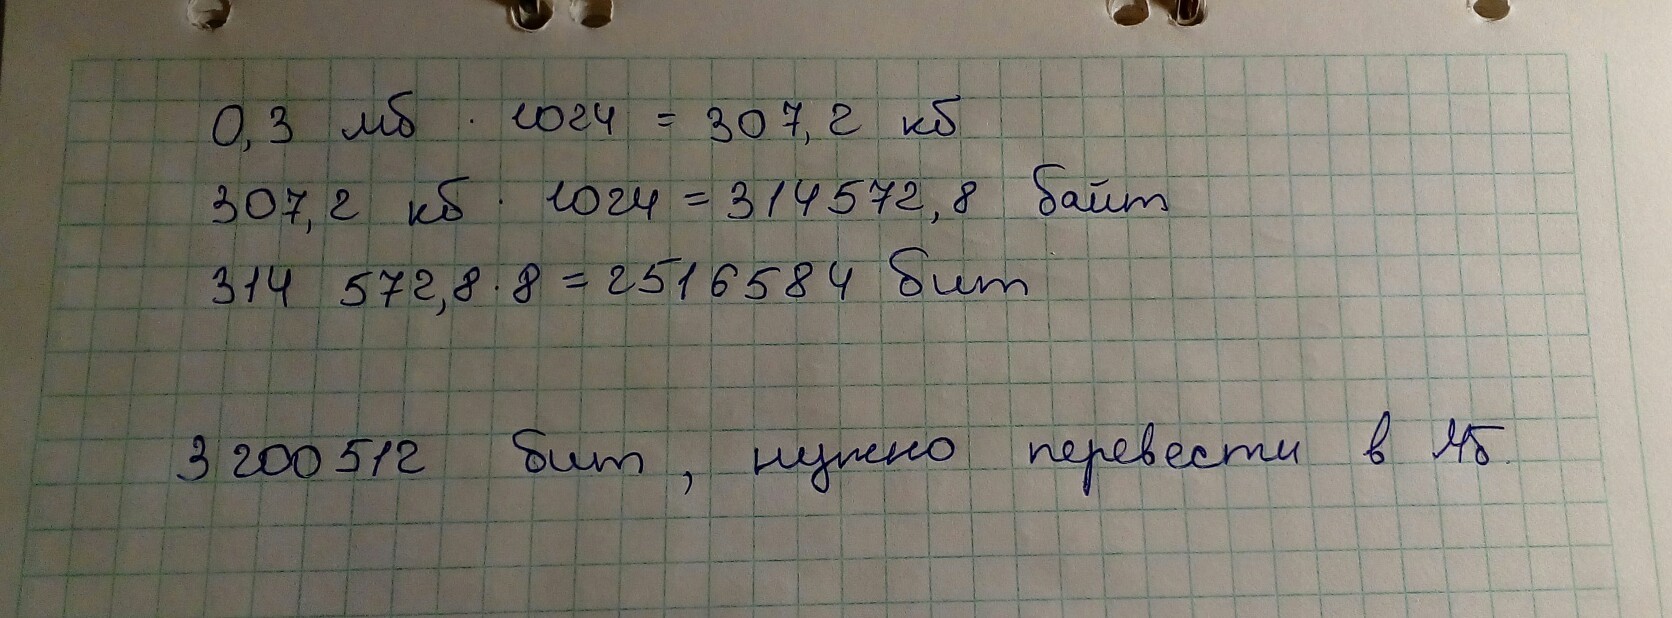 0,3 мб · 1024 = 307,2 кб
307,2 кб · 1024 = 314572,8 байт
314 572,8 · 8 = 2516584 бит
3200512 бит, нужно перевести в Мб.